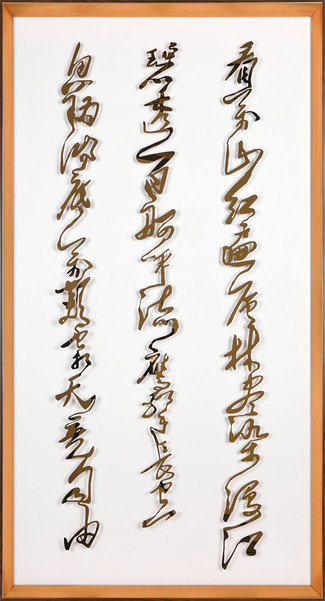 看万山红遍层林尽染漫江
碧透百舸争流鹰击长空
鱼翔浅底万类霜天竞自由